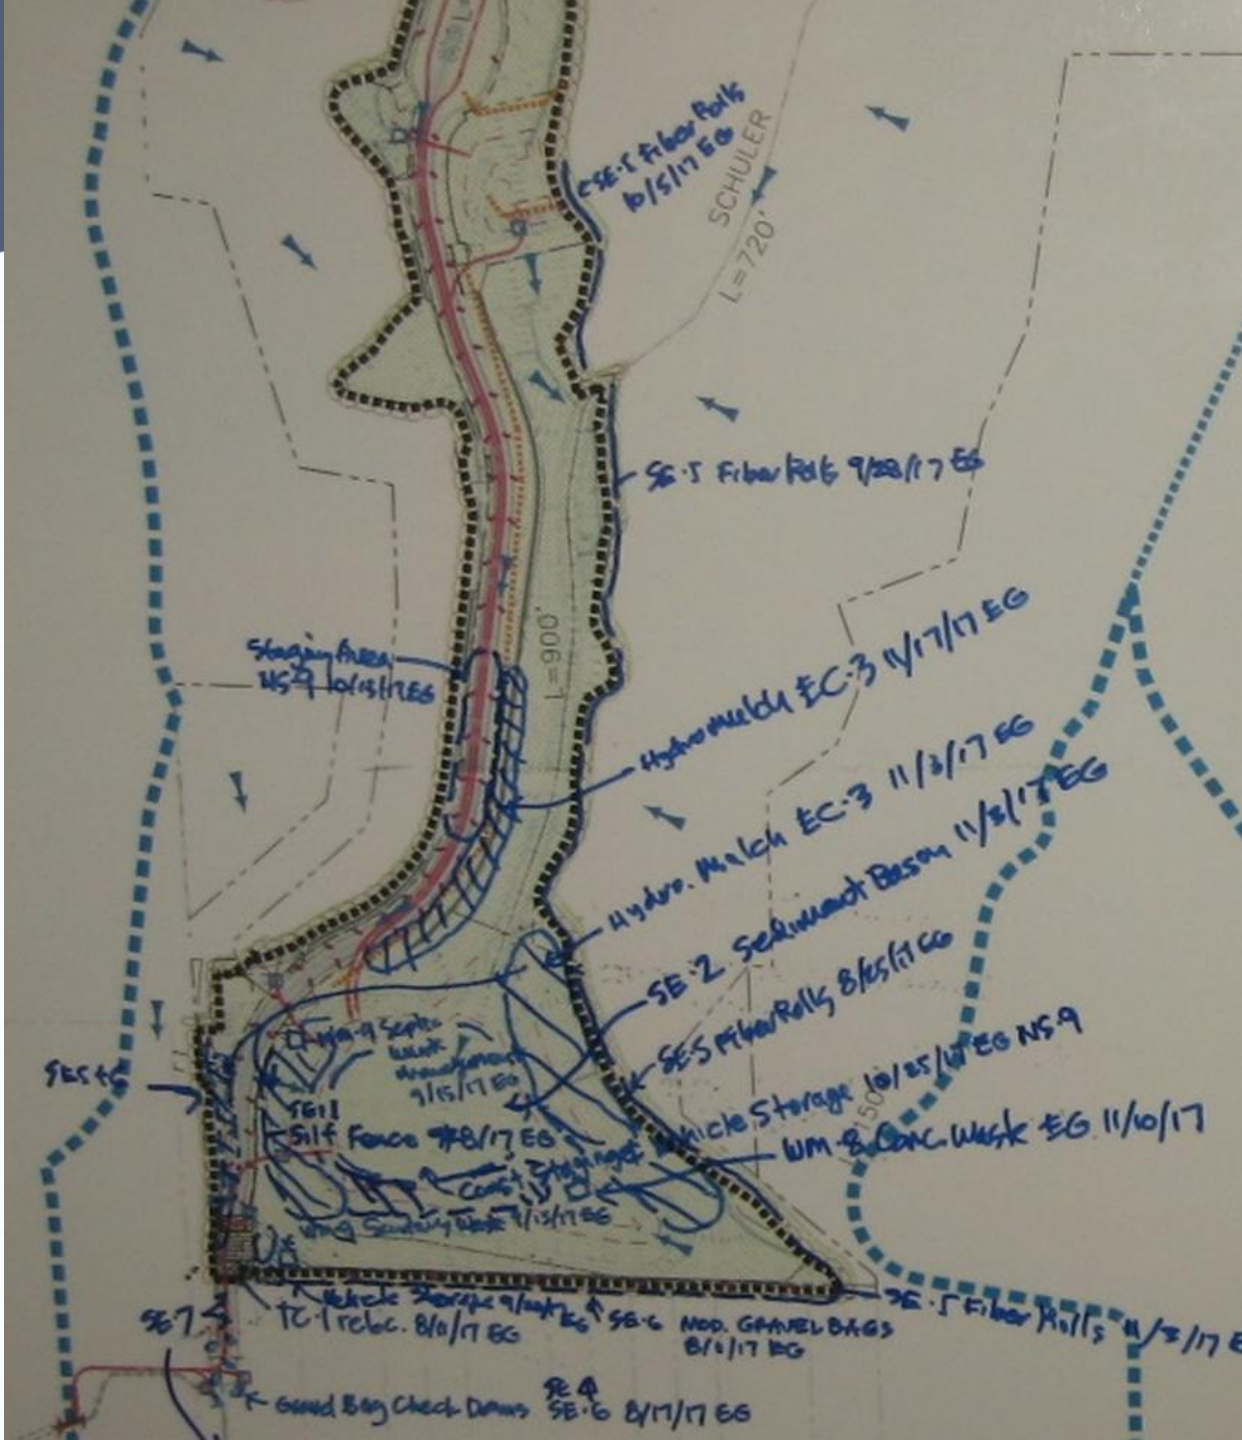 L=
SE-5 Fiber Rolls
10/5/17 EG
SCHULER
L=720'
SE-5 Fiber Rolls 9/28/17 EG
L=900'
Staging Area
NS-9 10/13/17 EG
Hydromulch EC-3 11/17/17 EG
Hydro. Mulch EC-3 11/3/17 EG
SE-2 Sediment Basin 11/3/17 EG
SE-5 Fiber Rolls 8/25/17 EG
Vehicle Storage 10/25/17 EG NS-9
WM-8 Conc. Wask EG 11/10/17
WM-9 Septic
9/15/17 EG
SE-1
Silt Fence 9/28/17 EG
Const. Staging
Sanitary 9/15/17 EG
Vehicle Storage EG
TC-1 reloc. 8/11/17 EG
SE-6 MOD. GRAVEL BAGS
SE-5 Fiber Rolls 11/3/17 E
SE-7
Gravel Bag Check Dams SE-6 8/17/17 EG
SE 4